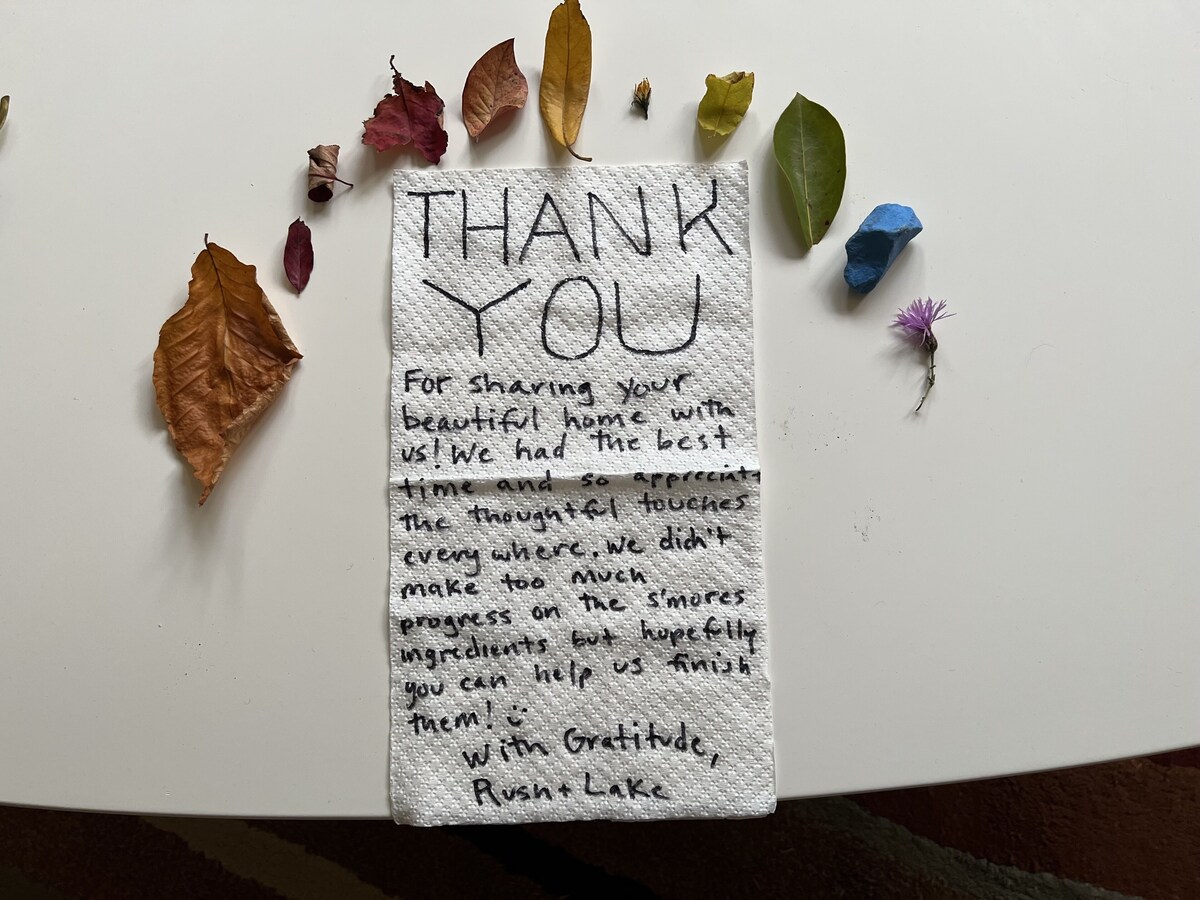 THANK
YOU
For sharing your
beautiful home with
us! We had the best
time and so appreciate
the thoughtful touches
everywhere. We didn't
make too much
progress on the s'mores
ingredients but hopefully
you can help us finish
them! :)
With Gratitude,
Rush + Lake